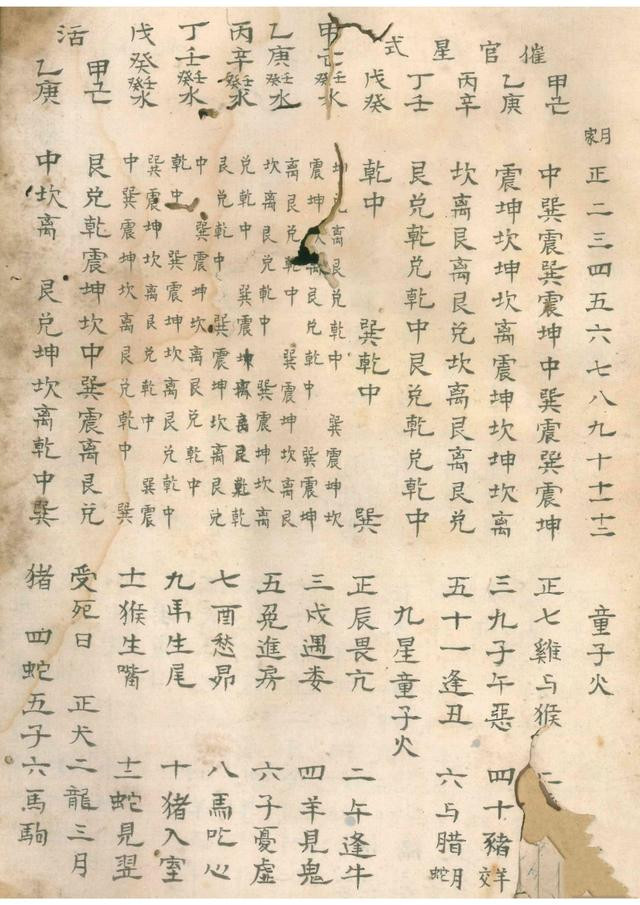 催官星式
月家 正二三四五六七八九十十一十二
甲己 中巽震巽震坤中巽震巽震坤
乙庚 震坤坎坤坎離震坤坎坤坎離
丙辛 坎離艮離艮兌坎離艮離艮兌
丁壬 艮兌乾兌乾中艮兌乾兌乾中
戊癸 乾中 巽乾中 巽
甲己壬癸水 離艮兌乾中 巽震坤坎
震坤 離艮兌乾中 巽震坤
乙庚壬癸水 離艮兌乾中 巽震坤坎離艮
坎離艮兌乾中 巽震坤坎離
丙辛壬癸水 兌乾中 巽震坤坎離艮兌乾
艮兌乾中 巽震坤坎離艮兌
丁壬壬癸水 中 巽震坤坎離艮兌乾中
乾中 巽震坤坎離艮兌乾中
戊癸壬癸水 巽震坤坎離艮兌乾中 巽震
中巽震坤坎離艮兌乾中 巽
活
甲己 艮兌乾震坤坎中巽震離艮兌
乙庚 中坎離 艮兌坤坎離乾中巽
童子火
正七雞与猴 二
三九子午惡 四十豬羊交
五十一逢丑 六与腊月蛇
九星童子火
正辰畏亢 二午逢牛
三戍遇娄 四羊見鬼
五兔進房 六子憂虛
七酉愁昴 八馬吃心
九馬生尾 十豬入室
十一猴生嘴 十二蛇見翌
受死日 正犬二龍三月
豬 四蛇五子六馬駒